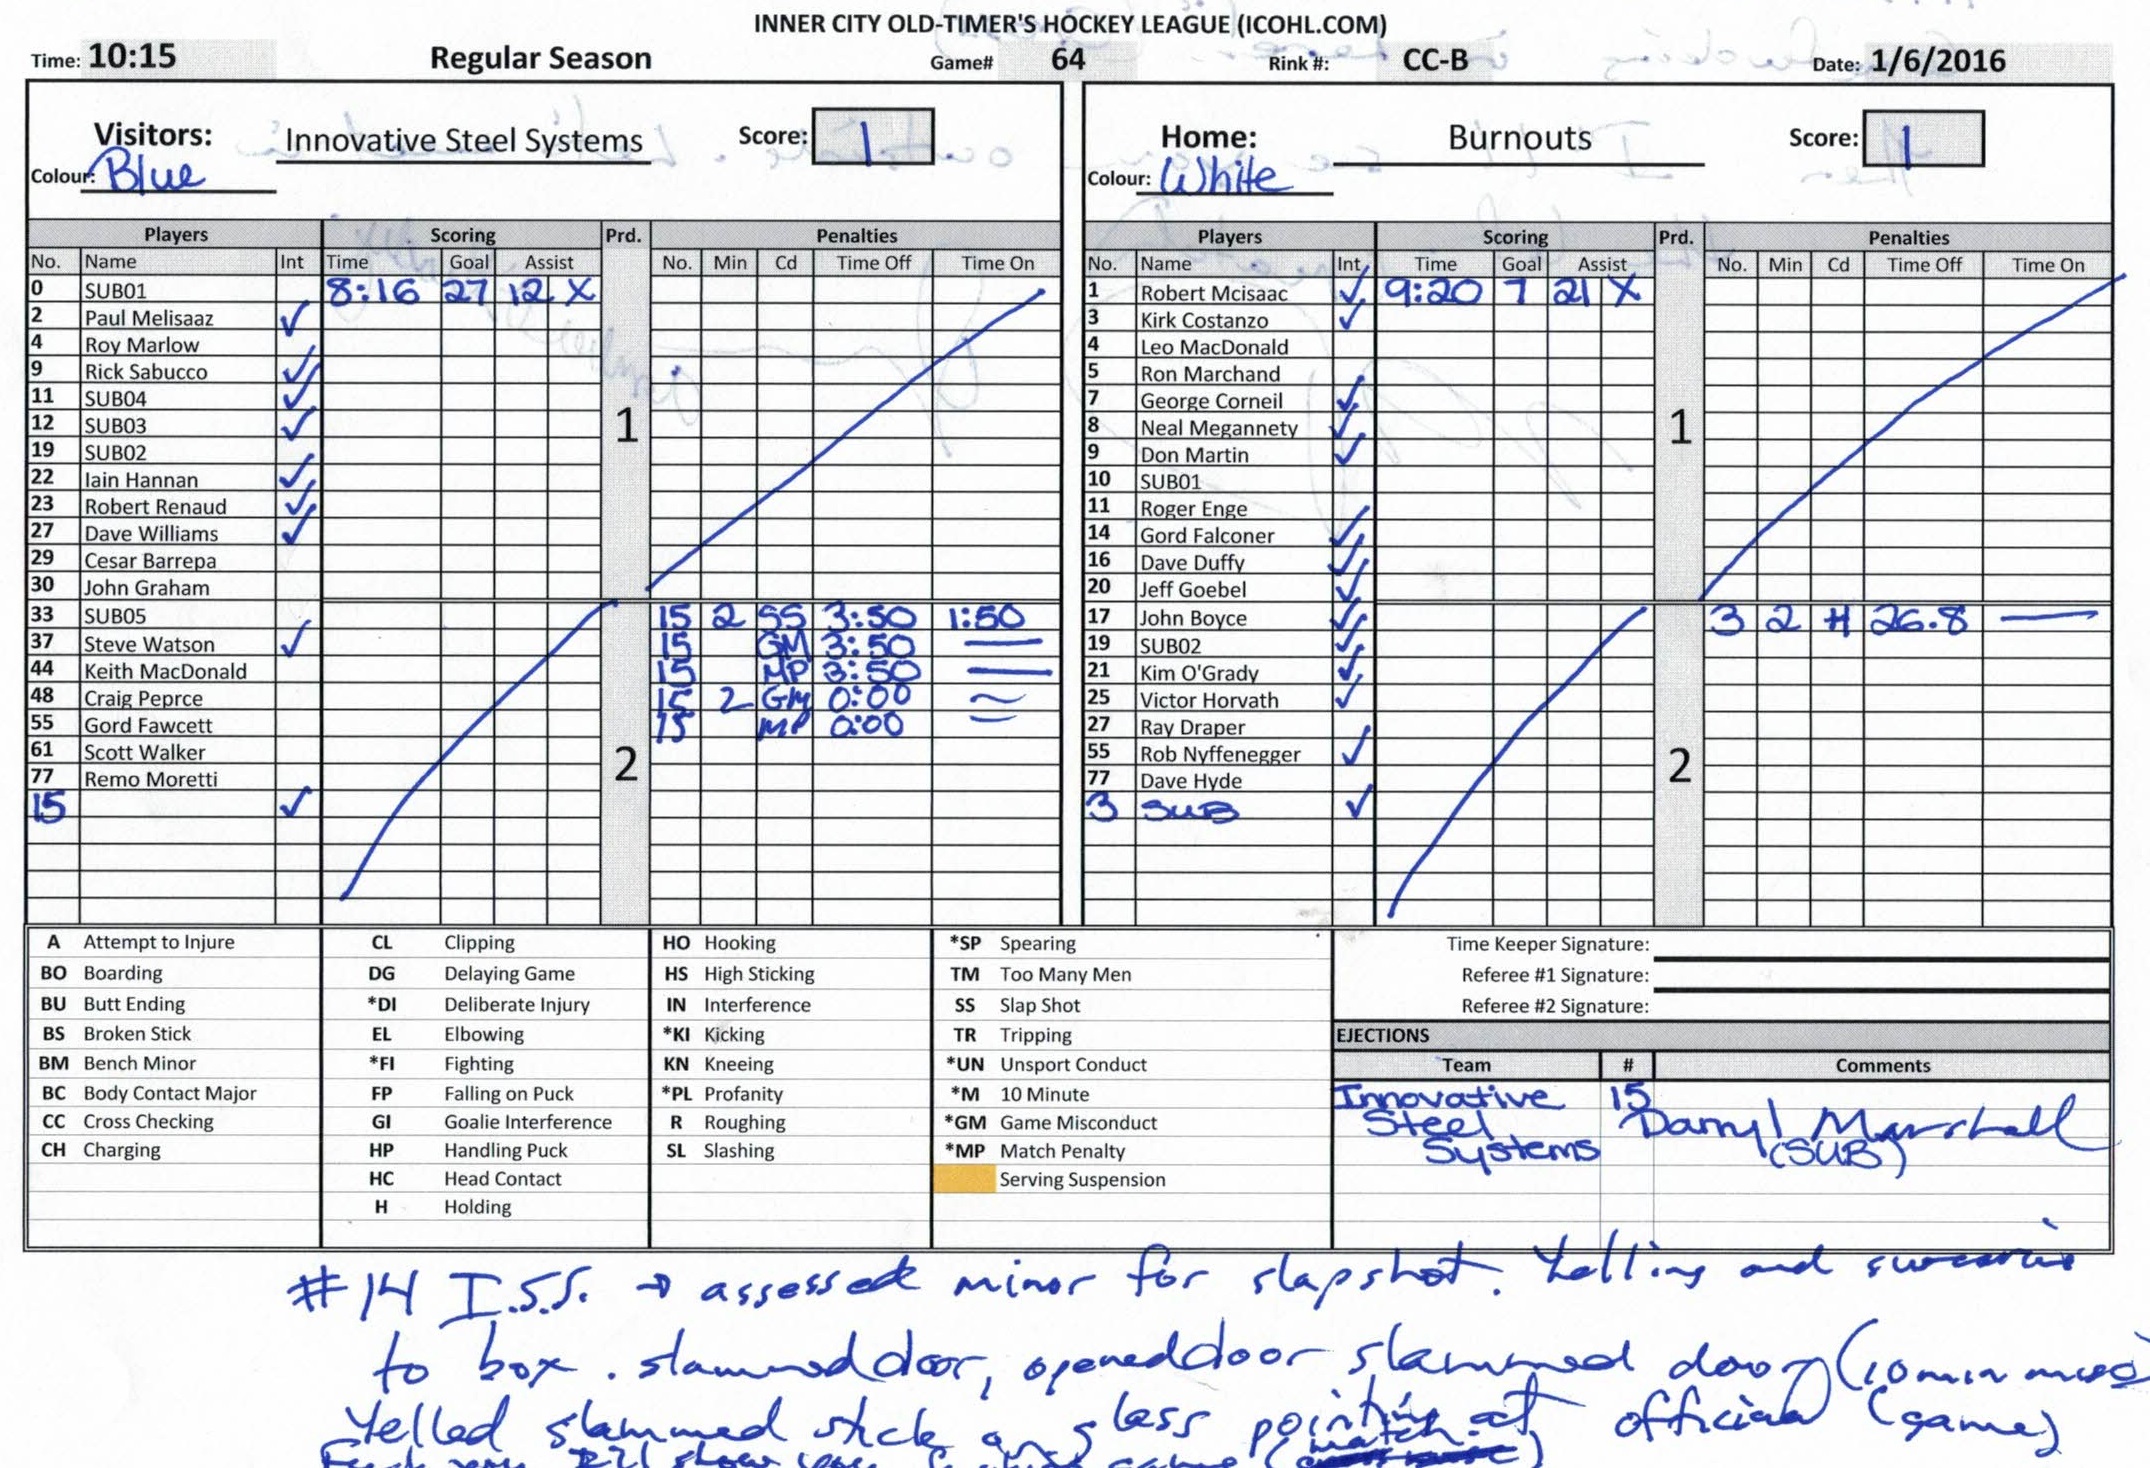 INNER CITY OLD-TIMER'S HOCKEY LEAGUE (ICOHL.COM)
Time: 10:15 Regular Season Game# 64 Rink #: CC-B Date: 1/6/2016
Visitors: Innovative Steel Systems Score: 1
Colour: Blue
Home: Burnouts Score: 1
Colour: White
Players Scoring Prd. Penalties
No. Name Int Time Goal Assist No. Min Cd Time Off Time On
0 SUB01 8:16 27 12 X
2 Paul Melisaaz ✓
4 Roy Marlow
9 Rick Sabucco ✓
11 SUB04 ✓
12 SUB03 ✓
1
19 SUB02
22 Iain Hannan ✓
23 Robert Renaud ✓
27 Dave Williams ✓
29 Cesar Barrepa
30 John Graham
33 SUB05 15 2 SS 3:50 1:50
37 Steve Watson ✓ 15 GM 3:50 —
44 Keith MacDonald 15 MP 3:50 —
48 Craig Peprce 15 2 GM 0:00
55 Gord Fawcett 15 MP 0:00
61 Scott Walker
2
77 Remo Moretti
15 ✓
Players Scoring Prd. Penalties
No. Name Int Time Goal Assist No. Min Cd Time Off Time On
1 Robert Mcisaac ✓ 9:20 7 21 X
3 Kirk Costanzo ✓
4 Leo MacDonald
5 Ron Marchand
7 George Corneil ✓
8 Neal Megannety ✓
1
9 Don Martin ✓
10 SUB01
11 Roger Enge
14 Gord Falconer ✓
16 Dave Duffy ✓
20 Jeff Goebel ✓
17 John Boyce ✓ 3 2 H 26.8 —
19 SUB02 ✓
21 Kim O'Grady ✓
25 Victor Horvath ✓
27 Ray Draper
55 Rob Nyffenegger ✓
2
77 Dave Hyde
3 SUB ✓
A Attempt to Injure
BO Boarding
BU Butt Ending
BS Broken Stick
BM Bench Minor
BC Body Contact Major
CC Cross Checking
CH Charging
CL Clipping
DG Delaying Game
*DI Deliberate Injury
EL Elbowing
*FI Fighting
FP Falling on Puck
GI Goalie Interference
HP Handling Puck
HC Head Contact
H Holding
HO Hooking
HS High Sticking
IN Interference
*KI Kicking
KN Kneeing
*PL Profanity
R Roughing
SL Slashing
*SP Spearing
TM Too Many Men
SS Slap Shot
TR Tripping
*UN Unsport Conduct
*M 10 Minute
*GM Game Misconduct
*MP Match Penalty
Serving Suspension
Time Keeper Signature:
Referee #1 Signature:
Referee #2 Signature:
EJECTIONS
Team # Comments
Innovative 15
Steel Darryl Marshall
Systems (SUB)
#14 I.S.S. → assessed minor for slapshot. Yelling and
to box. slammed door, opened door slammed door (10 min
Yelled slammed stick on glass pointing at official (game)
you game (match)